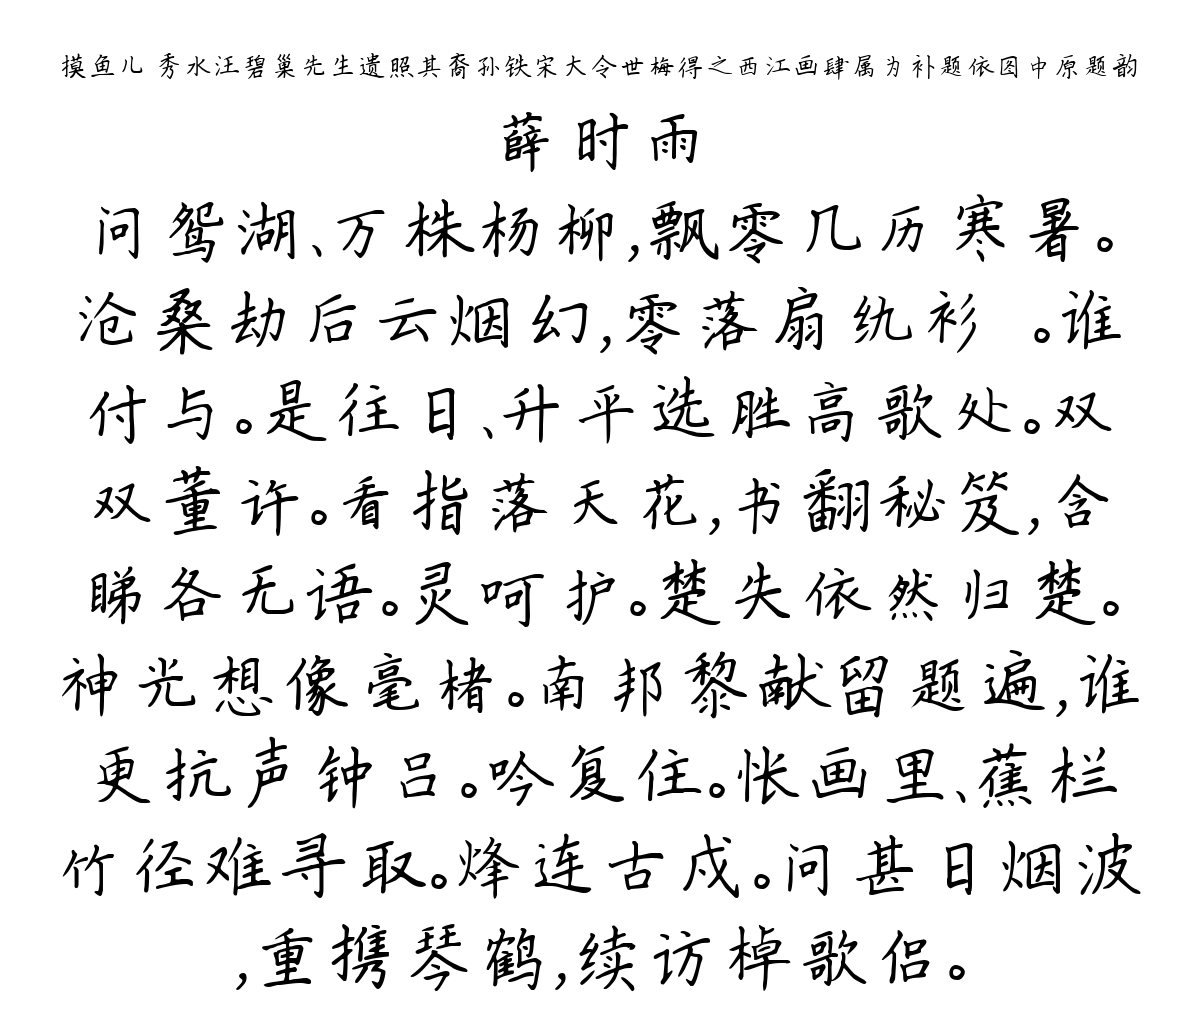 摸鱼儿 秀水汪碧巢先生遗照其裔孙铁宋大令世梅得之西江画肆属为补题依图中原题韵
薛时雨
问鸳湖、万株杨柳,飘零几历寒暑。
沧桑劫后云烟幻,零落扇纨衫 。谁
付与。是往日、升平选胜高歌处。双
双董许。看指落天花,书翻秘笈,含
睇各无语。灵呵护。楚失依然归楚。
神光想像毫楮。南邦黎献留题遍,谁
更抗声钟吕。吟复住。怅画里、蕉栏
竹径难寻取。烽连古戍。问甚日烟波
,重携琴鹤,续访棹歌侣。